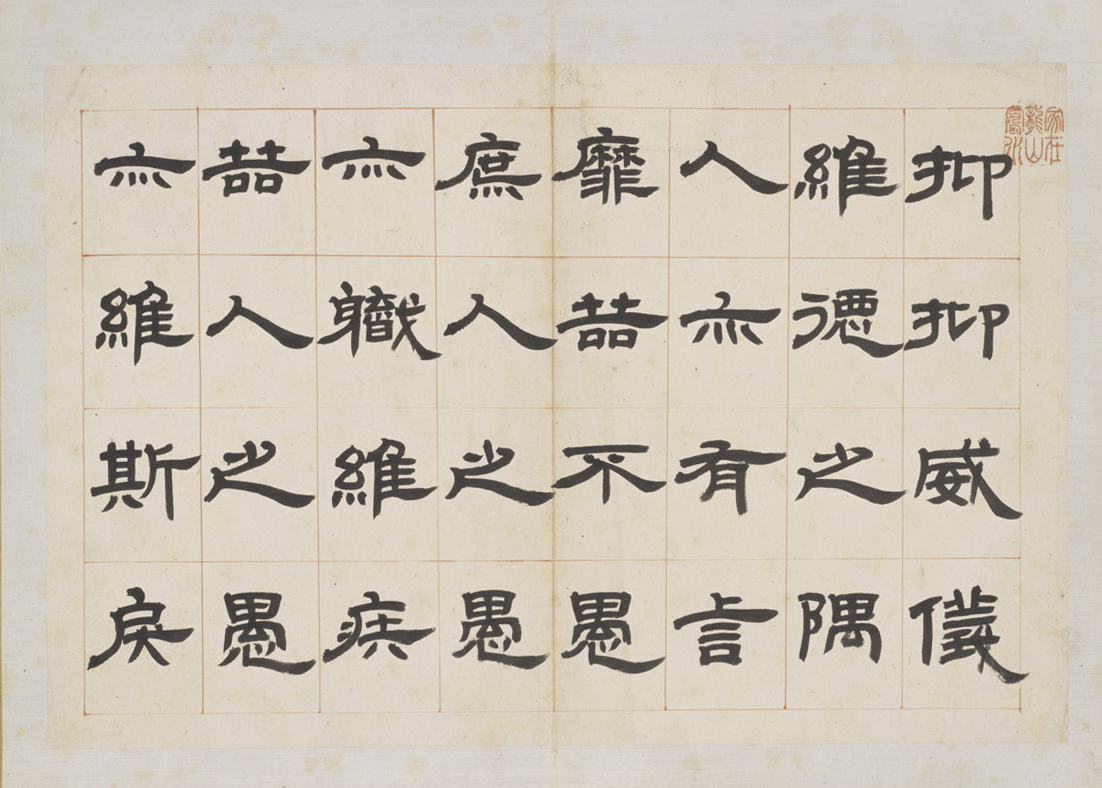 抑抑威儀
維德之隅
人亦有言
靡喆不愚
庶人之愚
亦軄維疾
喆人之愚
亦維斯戾
家在
龍山